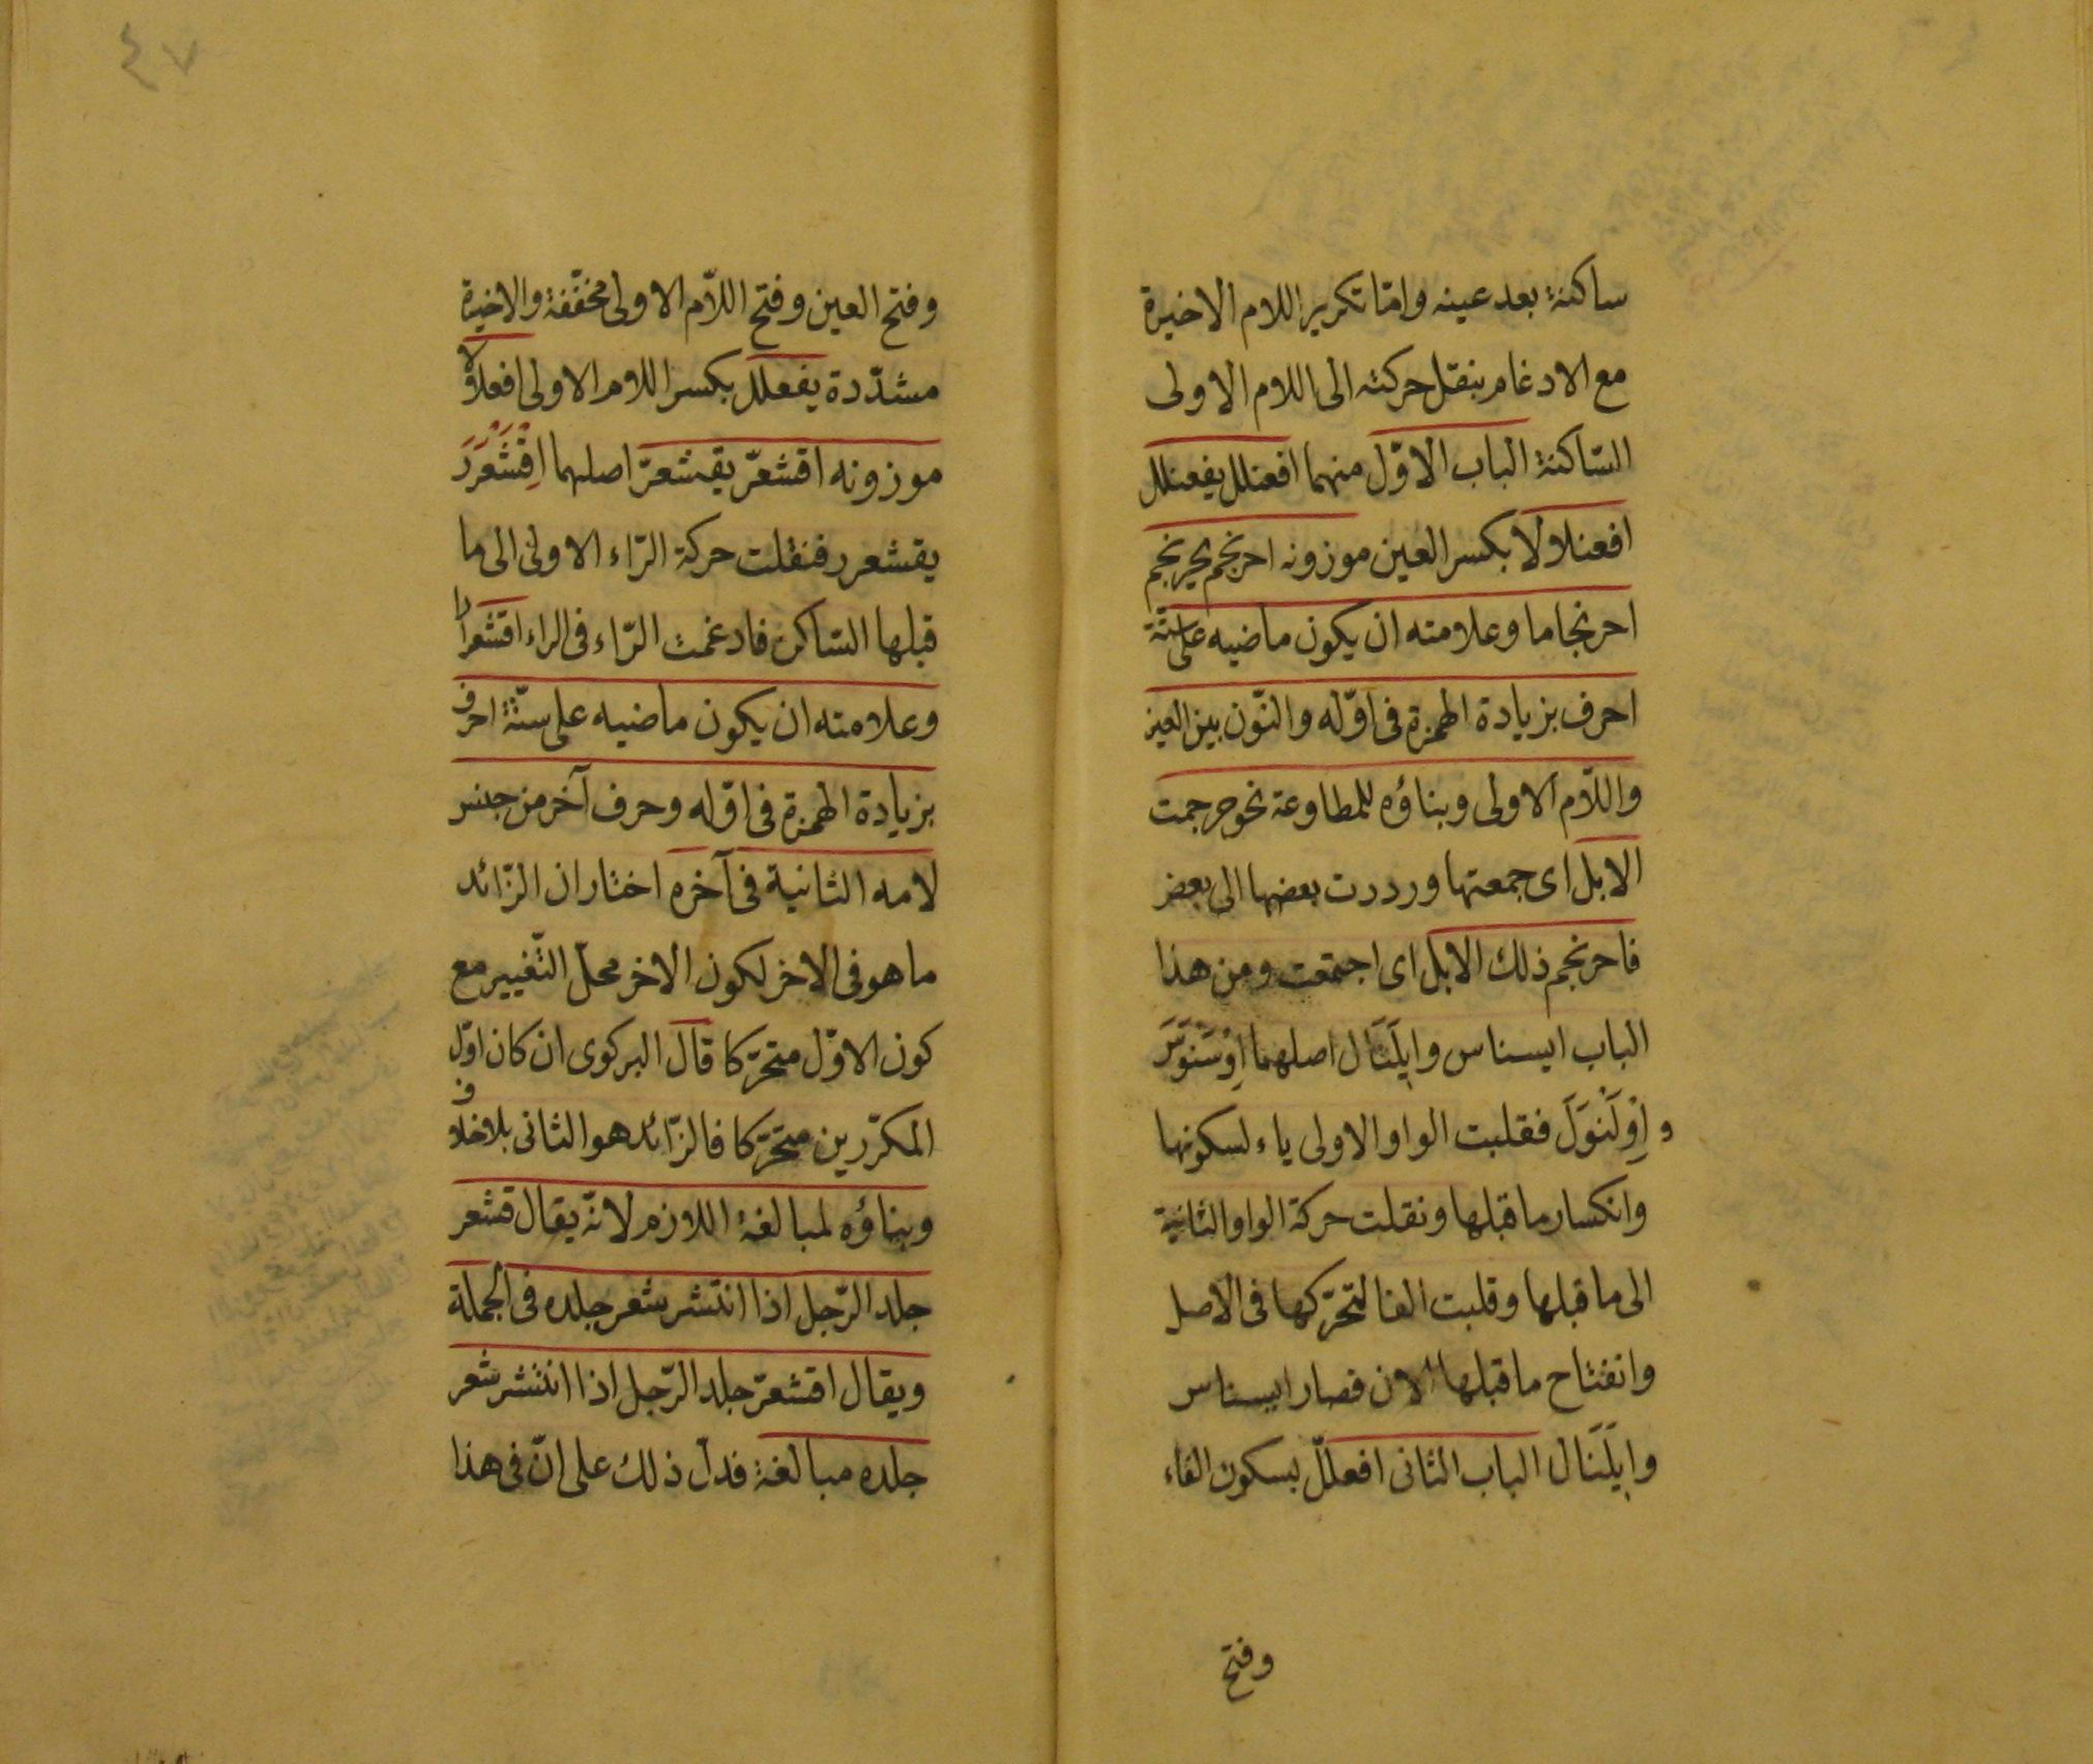 ساكنة بعد عينه وامّا تكرير اللام الاخيرة
مع الادغام بنقل حركته الى اللام الاولى
السّاكنة الباب الاوّل منهما افعنلل يفعنلل
افعنلالا بكسر العين موزونه احرنجم يحرنجم
احرنجاما وعلامته ان يكون ماضيه على ستّة
احرف بزيادة الهمزة فى اوّله والنّون بين العين
واللّام الاولى وبناؤه للمطاوعة نحو حرجمت
الابل اى جمعتها ورددت بعضها الى بعض
فاحرنجم ذلك الابل اى اجتمعت ومن هذا
الباب ايسناس وايلَنَال اصلهما اِوْسَنْوَسَ
و اِوْلَنْوَلَ فقلبت الواو الاولى ياء لسكونها
وانكسار ما قبلها ونقلت حركة الواو الثانية
الى ما قبلها وقلبت الفا لتحرّكها فى الاصل
وانفتاح ما قبلها الان فصار ايسناس
وايلَنَال الباب الثانى افعللّ بسكون الفاء
وفتح
٤٧
وفتح العين وفتح اللّام الاولى مخفّفة والاخيرة
مشدّدة يفعللّ بكسر اللام الاولى افعلالا
موزونه اقشعرّ يقشعرّ اصلهما اِقْشَعْرَرَ
يقشعرر فنقلت حركة الرّاء الاولى الى ما
قبلها السّاكن فادغمت الرّاء فى الراء اقشعرارا
وعلامته ان يكون ماضيه على ستّة احرف
بزيادة الهمزة فى اوّله وحرف آخر من جنس
لامه الثانية فى آخره اختار ان الزّائد
ما هو فى الاخر لكون الاخر محلّ التّغيير مع
كون الاوّل متحرّكا قال البركوى ان كان اوّل
المكرّرين متحرّكا فالزّائد هو الثانى بلا خلاف
وبناؤه لمبالغة اللازم لانّه يقال قشعر
جلد الرّجل اذا انتشر شعر جلده فى الجملة
ويقال اقشعرّ جلد الرّجل اذا انتشر شعر
جلده مبالغة فدلّ ذلك على انّ فى هذا